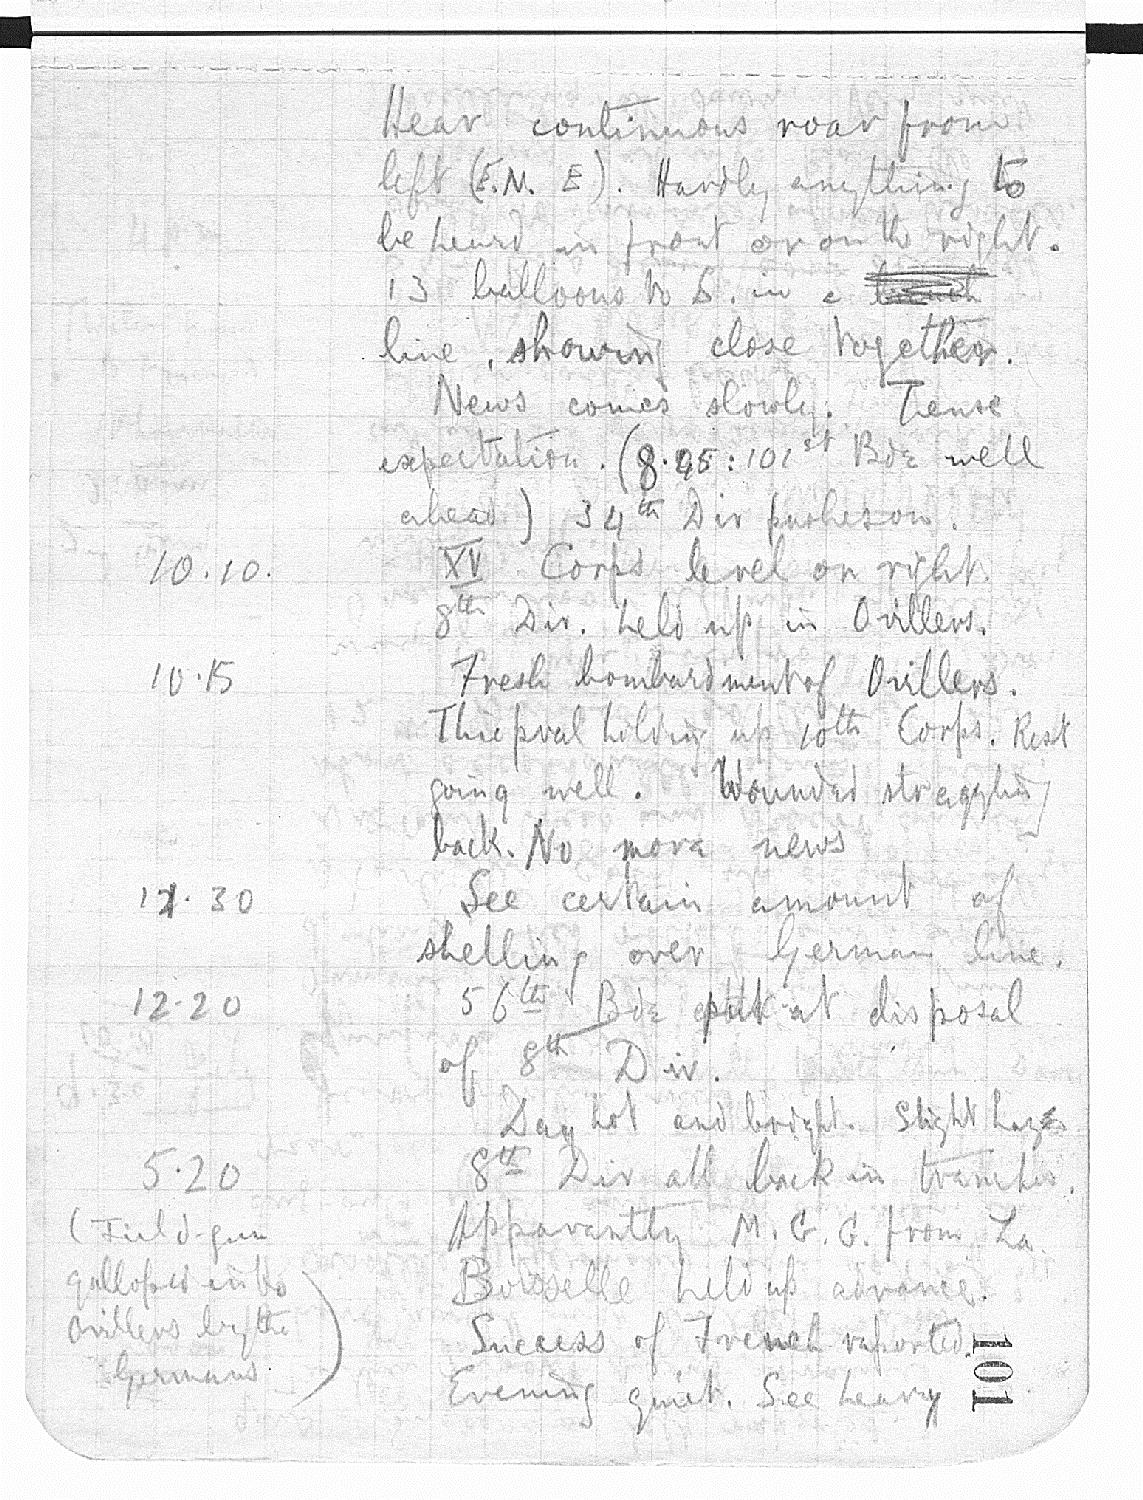 Hear continuous roar from
left (E.N. E). Hardly anything to
be heard in front or on the right.
13 balloons to S. in a
line, showing close together.
News comes slowly. Tense
expectation. (8.45: 101st Bde well
ahead) 34th Div pushes on.
10.10. XV Corps level on right.
8th Div. held up in Ovillers.
10.15 Fresh bombardment of Ovillers.
Thiepval holding up 10th Corps. Rest
going well. Wounded straggling
back. No more news
11.30 See certain amount of
shelling over German line.
12.20 56th Bde put at disposal
of 8th Div.
Day hot and bright. Slight haze
5.20 8th Div all back in trenches.
(Field-gun
galloped into
Ovillers by the
Germans)
Apparently M.G.G. from La
Boisselle held up advance.
Success of French reported.
Evening quiet. See heavy
101